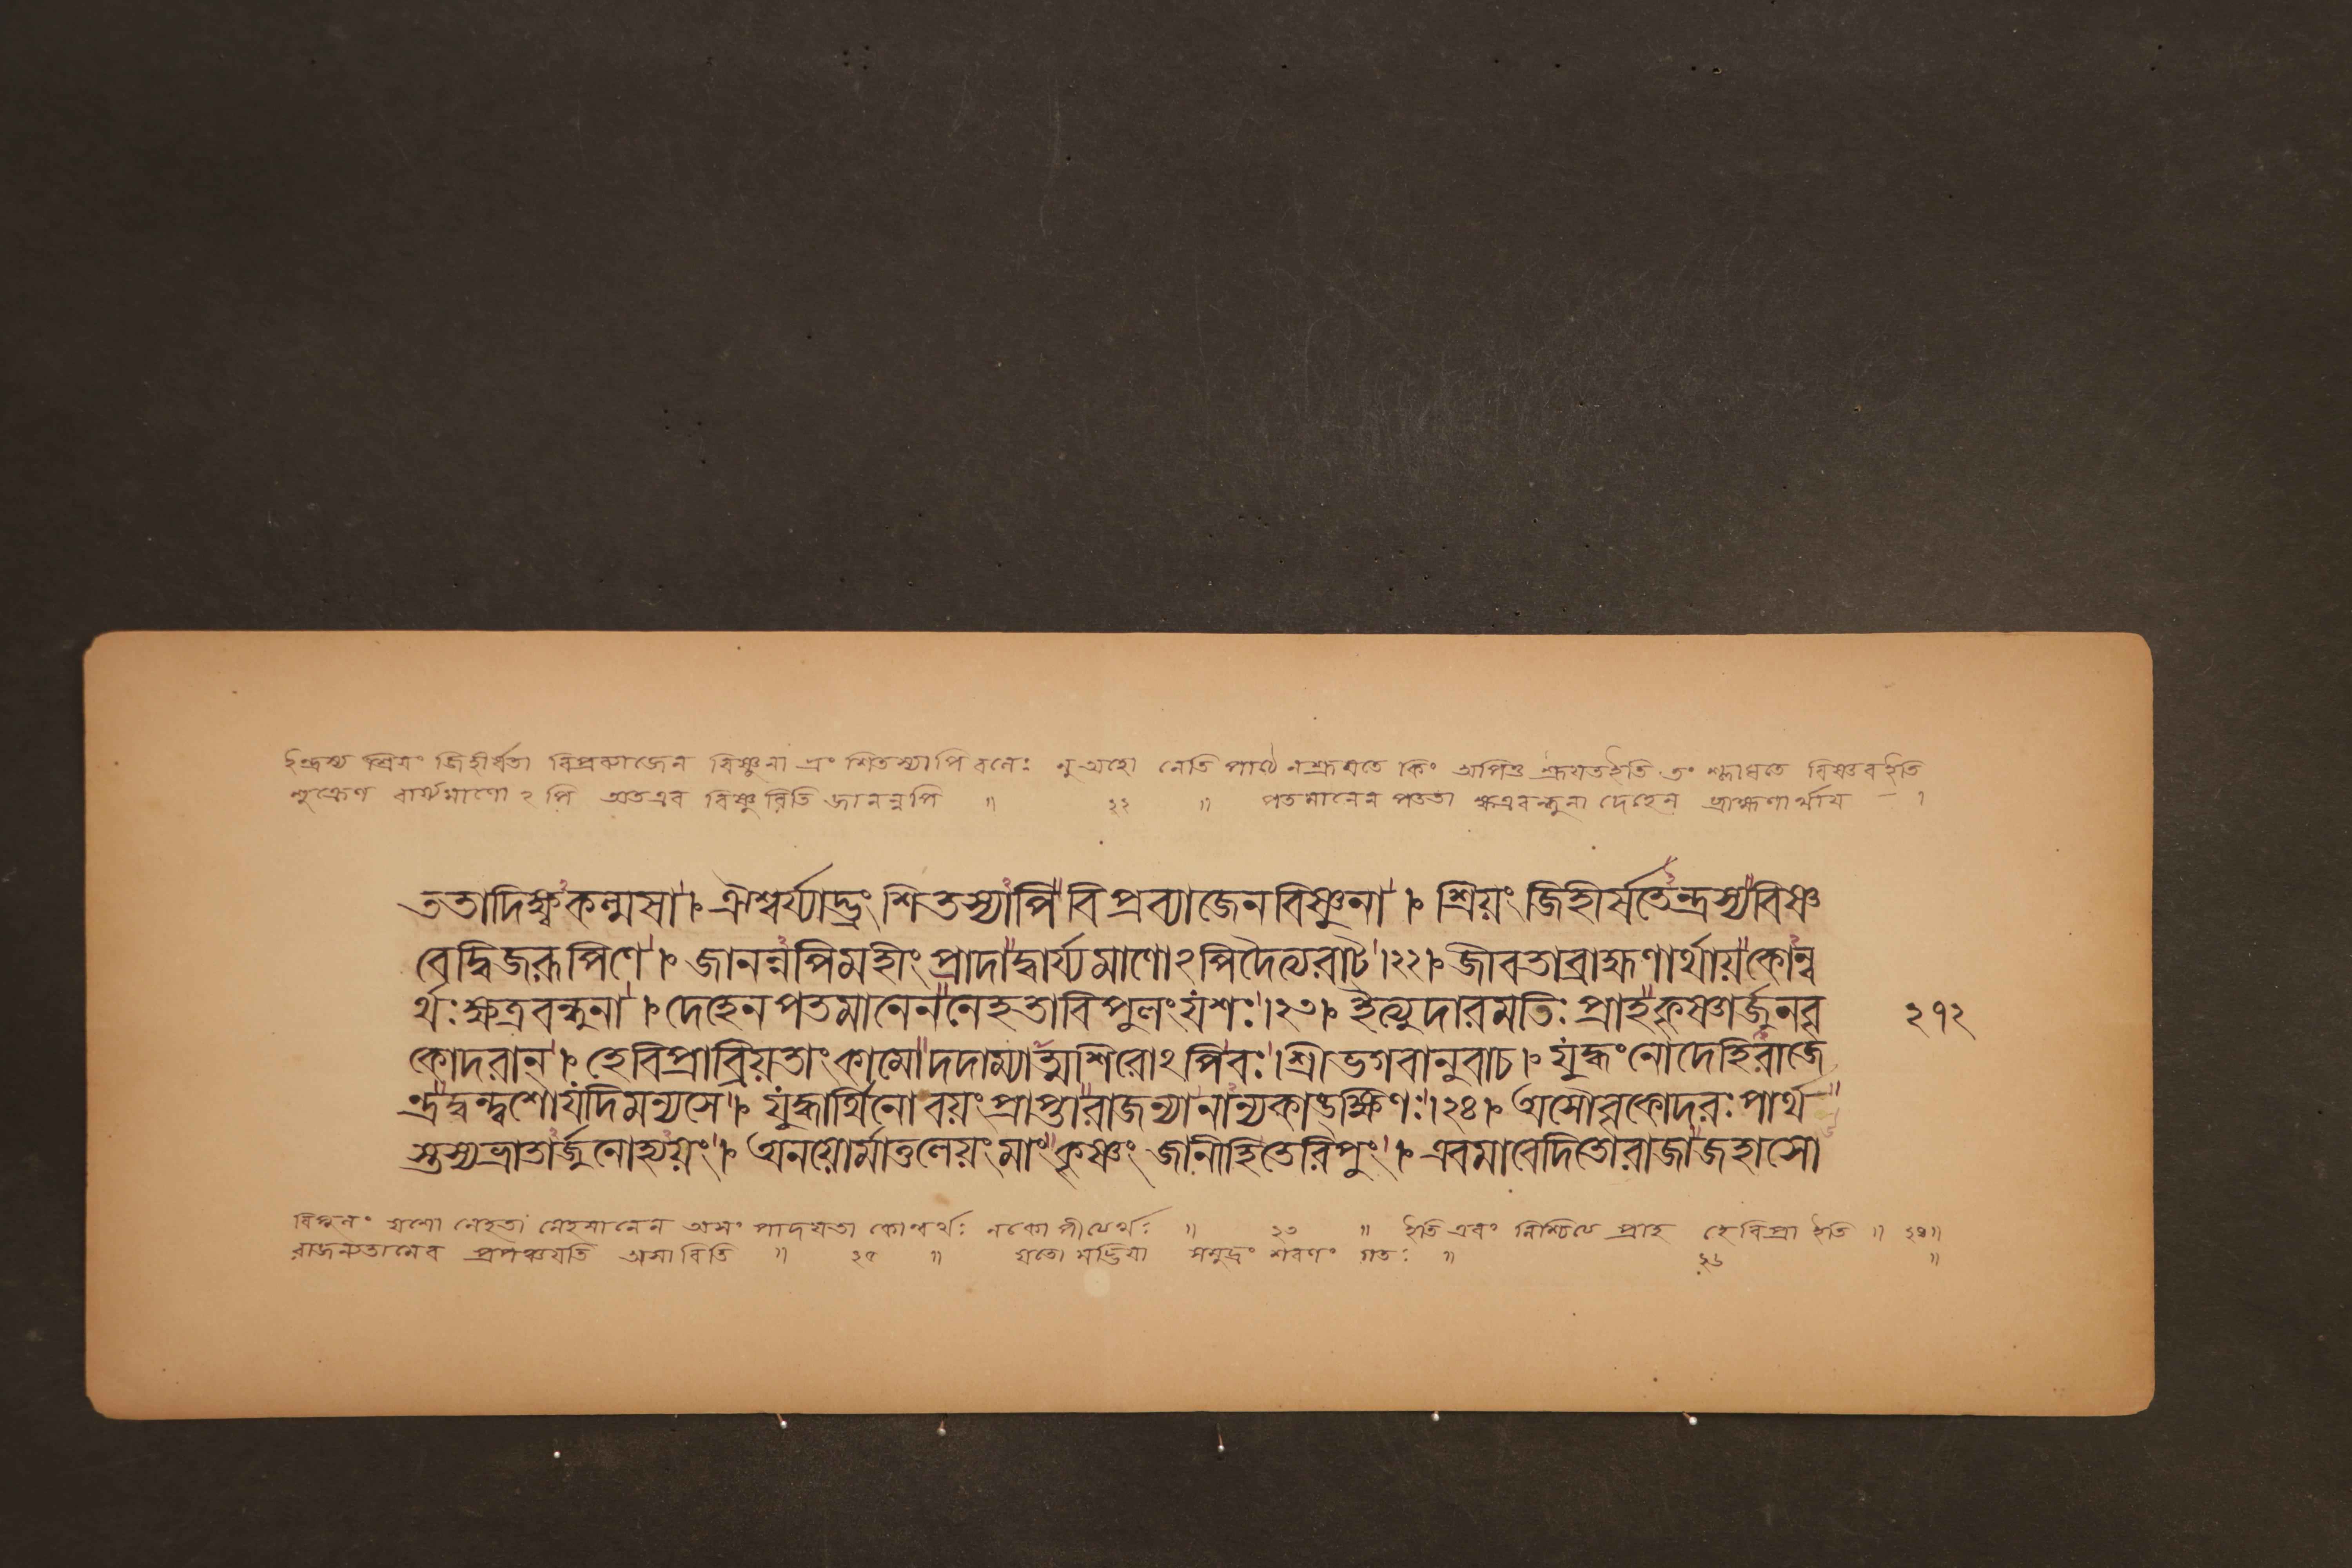 ইন্দ্রস্য শ্রিয়ং জিহীর্ষতা বিপ্রব্যাজেন বিষ্ণুনা ভ্রংশিতস্যাপি বলেঃ নু অহো নেতি পাঠে ন শ্রূয়তে কিং অপিতু শ্রূয়তইতি তং শ্লাঘতে বিষ্ণবইতি
শুক্রেণ বার্যমাণো ২ পি অতএব বিষ্ণুরিতি জানন্নপি ॥ ২২ ॥ পতমানেন পততা ক্ষত্রবন্ধুনা দেহেন ব্রাহ্মণার্থায় – ১
ততাদিক্ষ্বকল্মষা । ঐশ্বর্য্যাদ্ভ্রংশিতস্যাপি বিপ্রব্যাজেনবিষ্ণুনা । শ্রিয়ং জিহীর্ষতেন্দ্রস্যবিষ্ণ
বেদ্বিজরূপিণে । জানন্নপিমহীং প্রাদাদ্বার্য্যমাণো২পিদৈত্যরাট্ ।২২। জীবতাব্রাহ্মণার্থায়কোন্ব
র্থঃক্ষত্রবন্ধুনা । দেহেনপতমানেননেহতাবিপুলংযশঃ ।২৩। ইত্যুদারমতিঃ প্রাহকৃষ্ণার্জুনবৃ
কোদরান্ । হেবিপ্রাব্রিয়তাংকামোদদাম্যাত্মশিরো২পিবঃ । শ্রীভগবানুবাচ । যুদ্ধংনোদেহিরাজে
ন্দ্রদ্বন্দ্বশোযদিমন্যসে । যুদ্ধার্থিনোবয়ংপ্রাপ্তারাজন্যানান্যকাঙক্ষিণঃ ।২৪। অসৌবৃকোদরঃপার্থ
স্তস্যভ্রাতার্জুনোহ্যয়ং । অনয়োর্মাতুলেয়ংমাংকৃষ্ণং জানীহিতেরিপুং । এবমাবেদিতোরাজাজহাসো
২১২
বিপুলং যশো নেহতা নেহমানেন অসং পাদয়তা কোন্বর্থঃ নকোপীত্যর্থঃ ॥ ২৩ ॥ ইতি এবং নিশ্চিত্য প্রাহ হে বিপ্রা ইতি ॥ ২৪॥
রাজন্যতামেব প্রপঞ্চয়তি অসাবিতি ॥ ২৫ ॥ যতো মদ্ভিয়া সমুদ্রং শরণং গতঃ ॥ ২৬ ॥